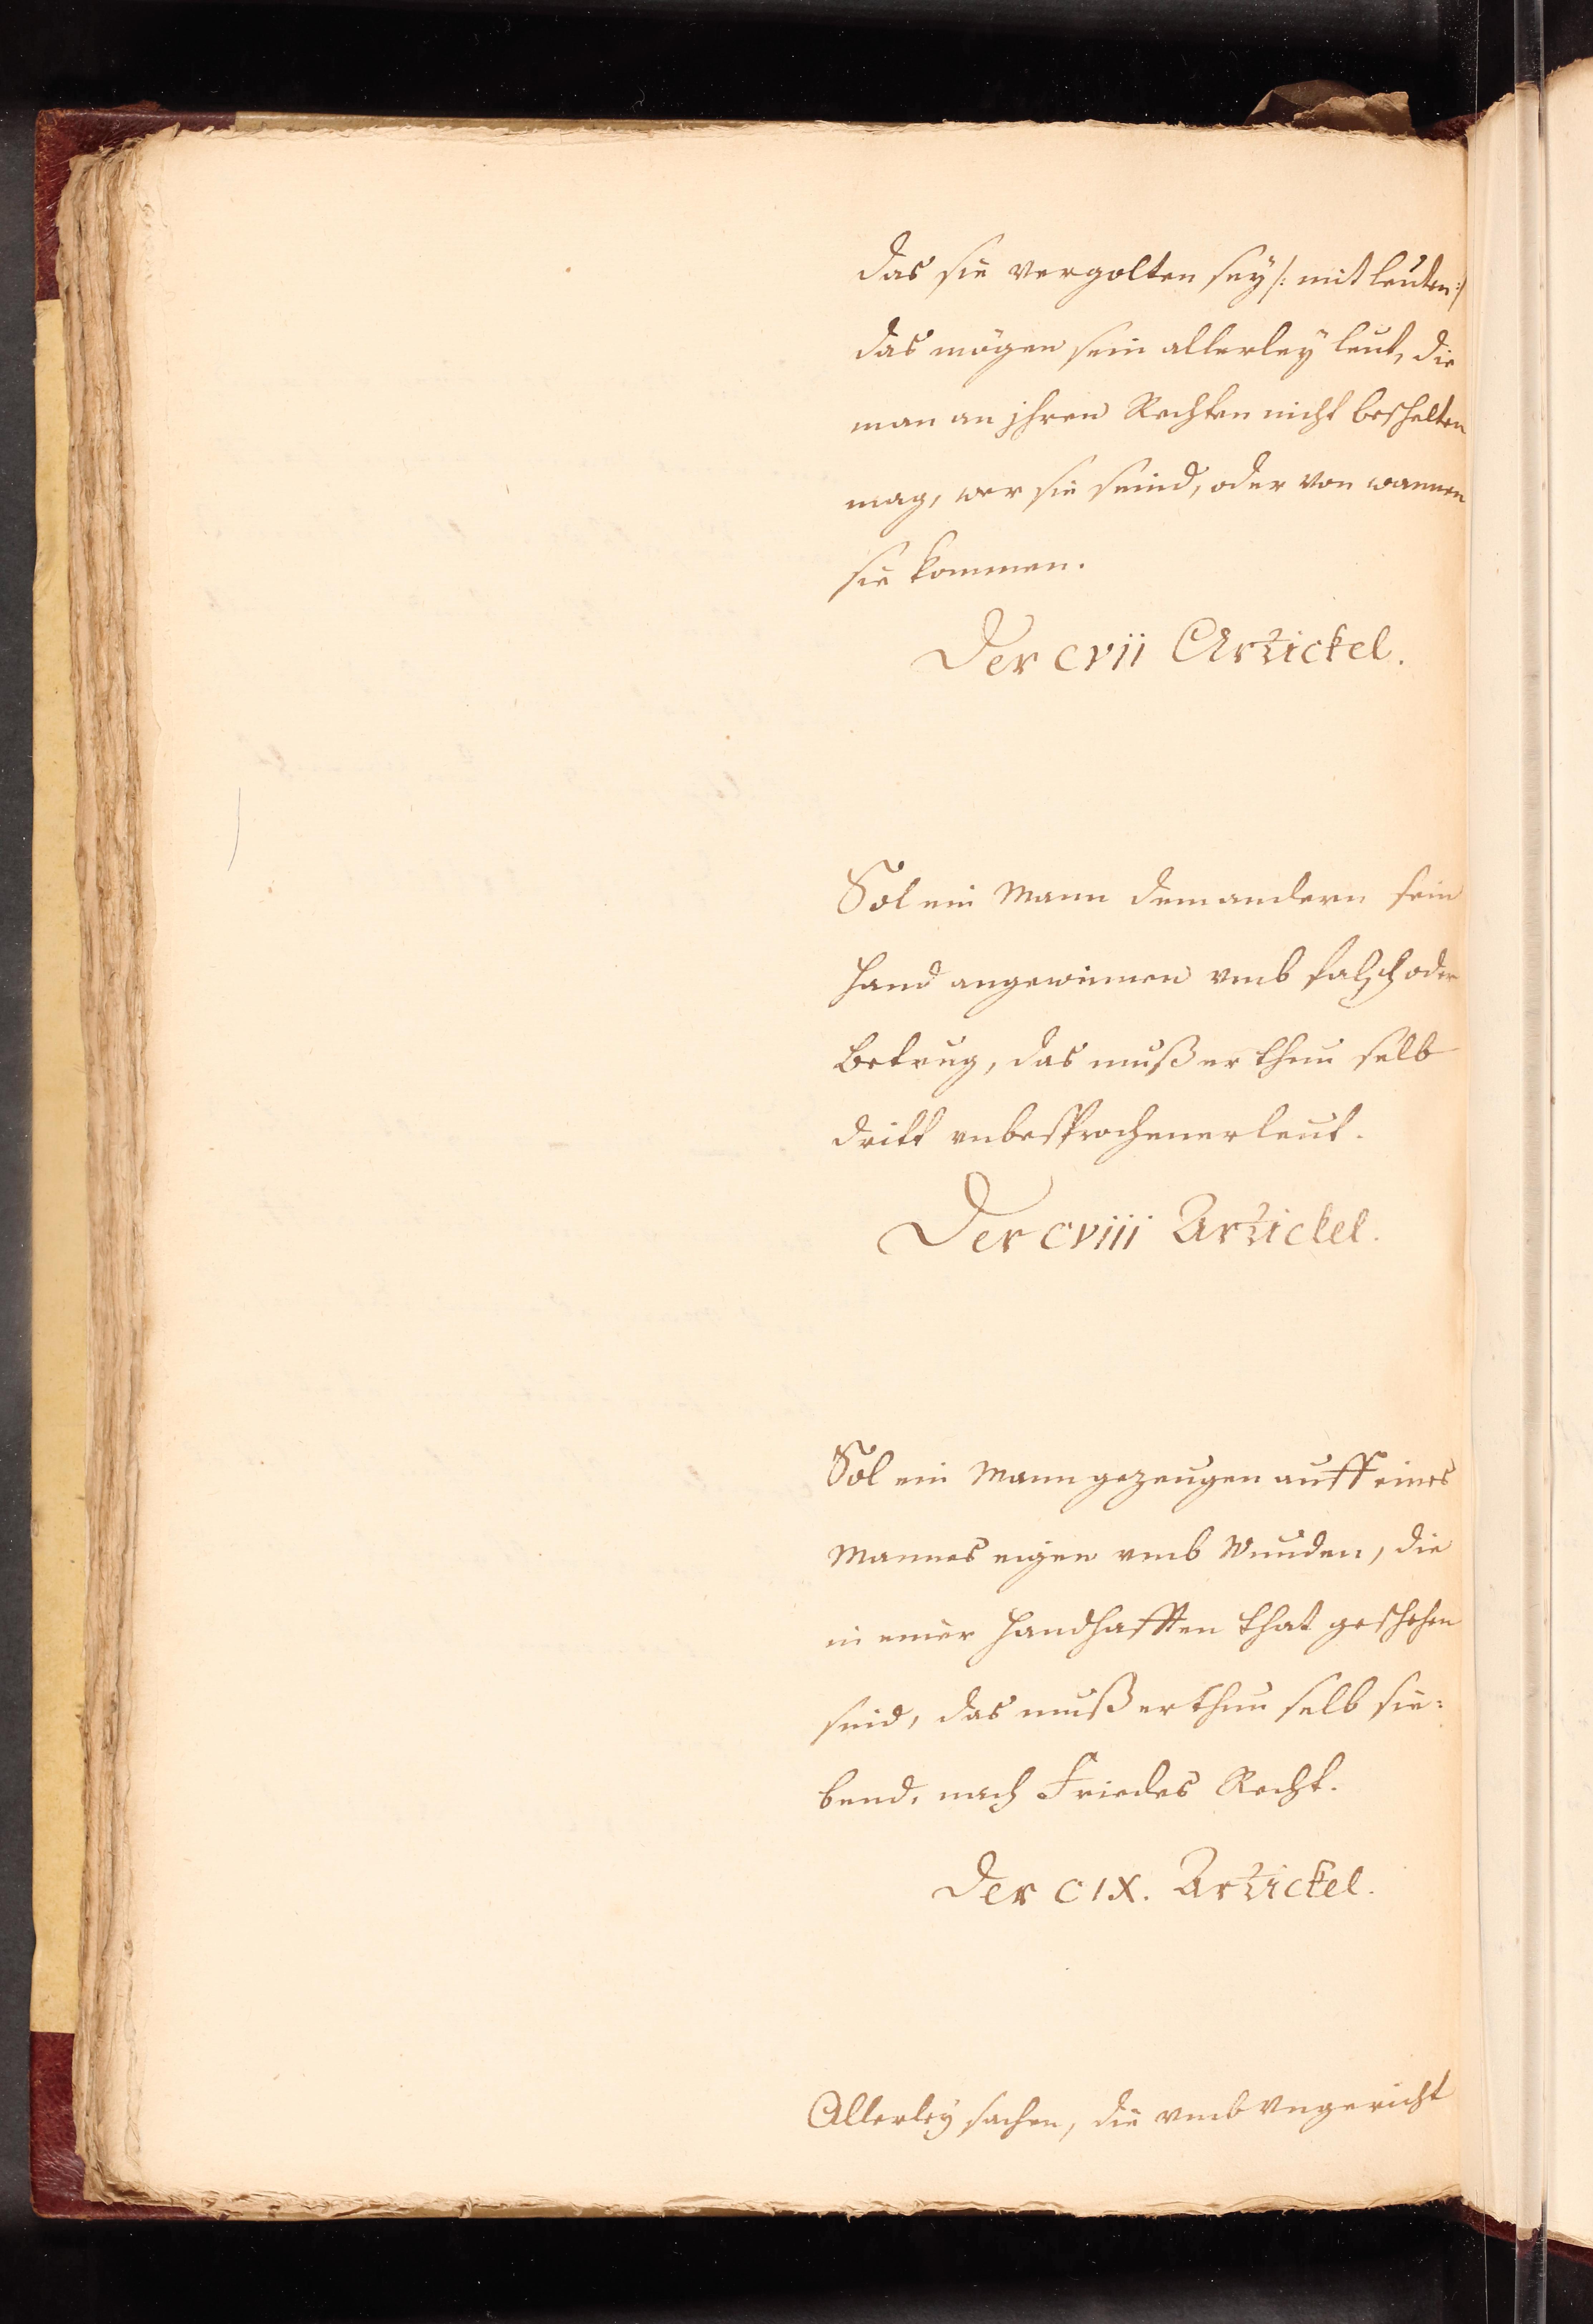 das sie vergolten seÿ /: mit leuten :/
das mögen sein allerleÿ leut, die
man an jhren Rechten nicht beschelten
mag, wer sie seind, oder von wannen
sie kommen.
Der cvii Artickel.
Sol ein Mann dem andern sein
Hand angewinnen vmb falsch oder
Betrug, das muß er thun selb
dritt vnbesprochener leut.
Der cviii Artickel.
Sol ein Mann gezeugen auff eines
Mannes eigen vmb Wunden, die
in einer Handhafften that geschehen
seind, das muß er thun selb sie:
bend, nach Friedes Recht.
Der cix. Artickel.
Allerleÿ sachen, die vmb Vngericht